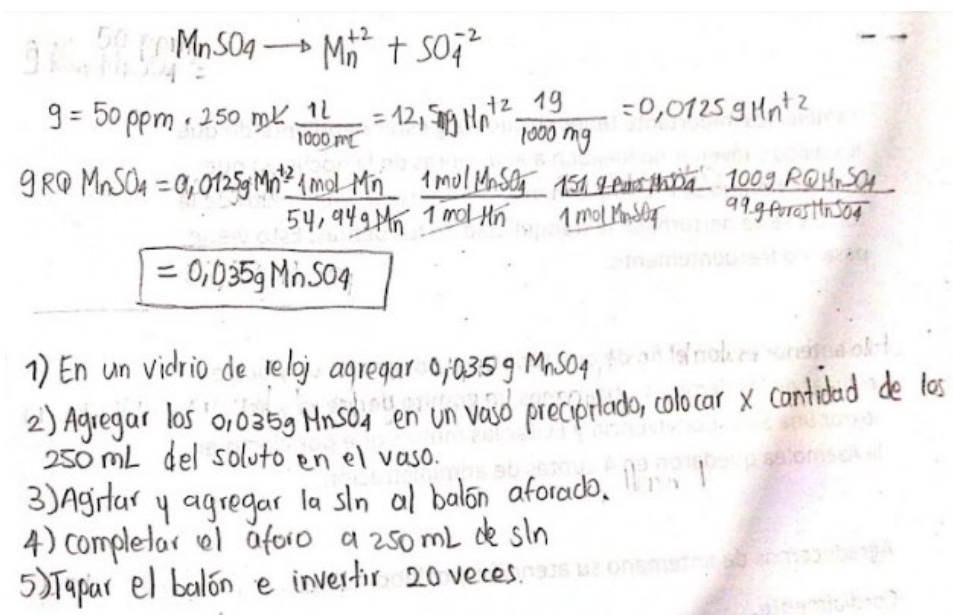 MnSO4 → Mn+2 + SO4-2
g = 50 ppm . 250 mL 1L/1000 mL = 12,5mg Mn+2 1g/1000 mg = 0,0125 g Mn+2
g RQ MnSO4 = 0,0125g Mn+2 1 mol Mn/54,94 g Mn 1 mol MnSO4/1 mol Mn 151 g Puros MnSO4/1 mol MnSO4 100g RQ MnSO4/99.g Puros MnSO4
= 0,035g MnSO4
1) En un vidrio de reloj agregar 0,035 g MnSO4
2) Agregar los 0,035g MnSO4 en un vaso precipitado, colocar x cantidad de los
250 mL del soluto en el vaso.
3) Agitar y agregar la sln al balón aforado.
4) completar el aforo a 250 mL de sln
5) Tapar el balón e invertir 20 veces.